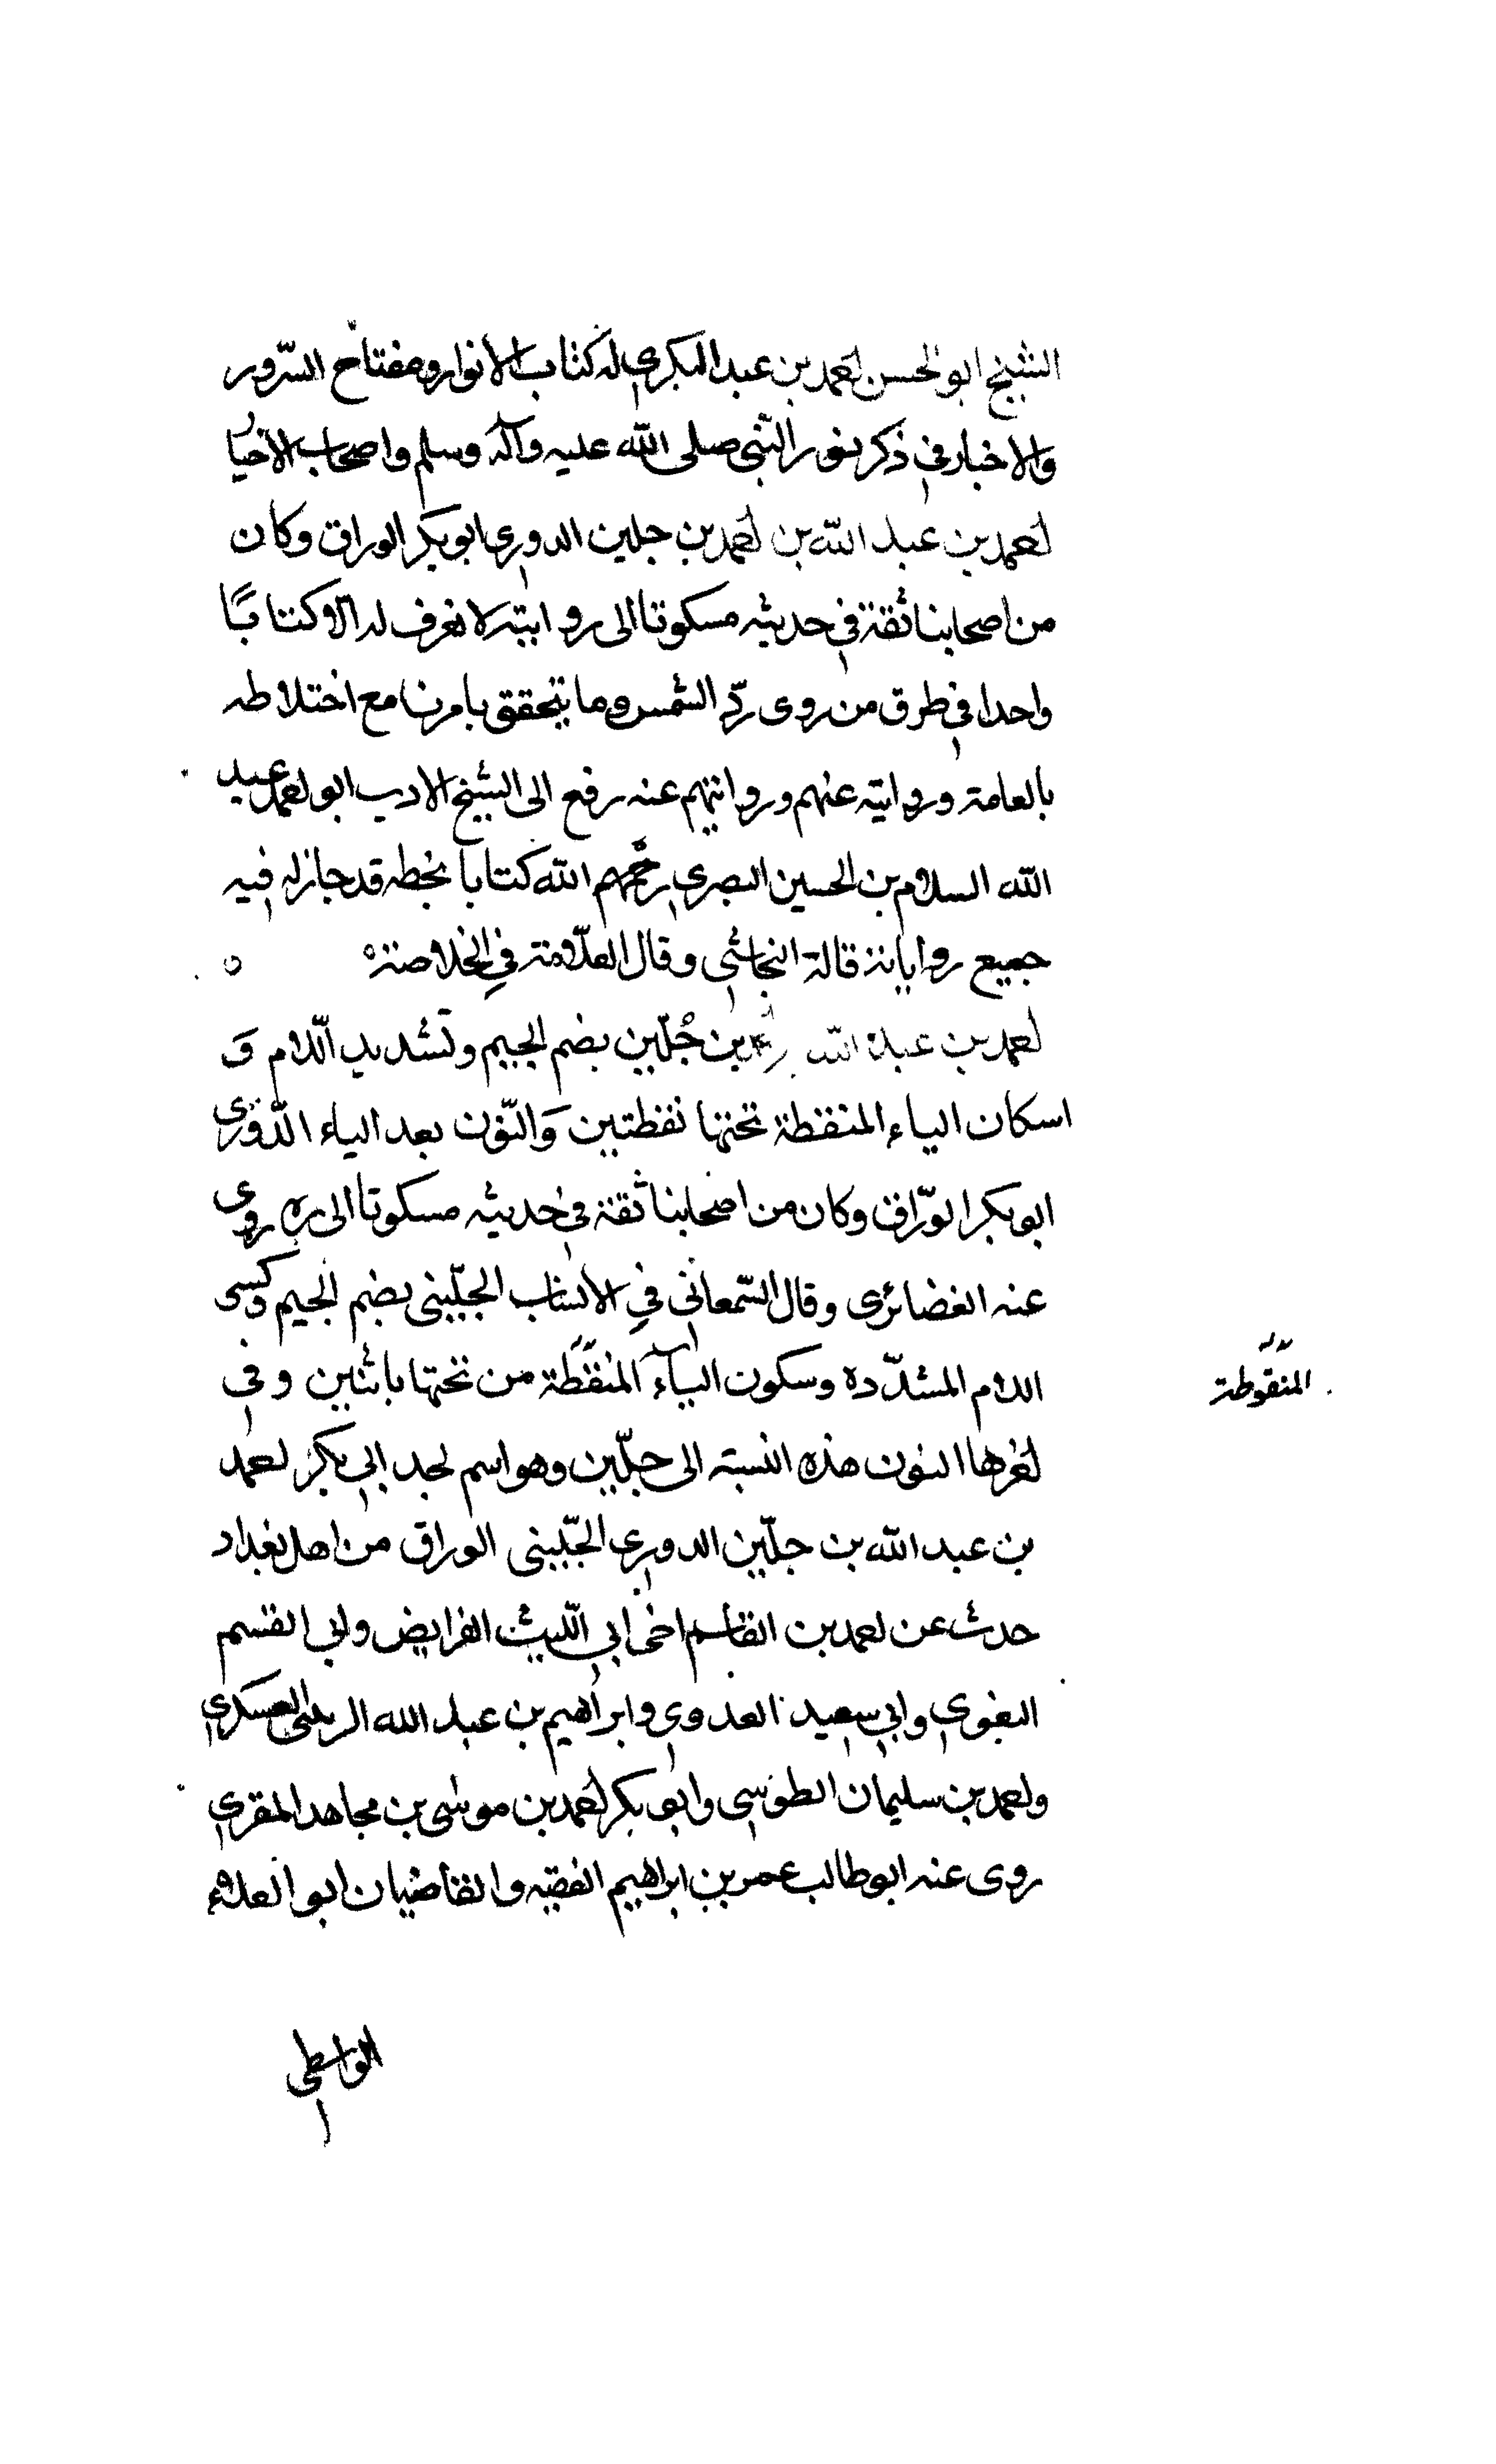 الشيخ ابو الحسن احمد بن عبد البكري له كتاب الانوار ومفتاح السّرور
والاخبار في ذكر نور النّبي صلى الله عليه وآله وسلم واصحاب الاخيار
احمد بن عبد الله بن احمد بن جلين الدوري ابو بكر الوراق وكان
من اصحابنا ثقة في حديثه مسكوتا الى روايته لا نعرف له الا كتابًا
واحدا في طرق من روى ردّ الشمس وما يتحقق بامرنا مع اختلاطه
بالعامة وروايته عنهم وروايتهم عنه رفع الى الشيخ الاديب ابو احمد عبد
الله السلام بن الحسين البصري رحمهم الله كتابا بخطه قد جاز له فيه
جميع رواياته قاله النجاشي وقال العلّامة في الخلاصة ه
احمد بن عبد الله بن جُلّين بضم الجيم وتشديد اللّام وَ
اسكان الياء المنقطة تحتها نقطتين وَالنّون بعد الياء الدّوري
ابو بكر الورّاق وكان من اصحابنا ثقة في حديثه مسكوتا الى ره روى
عنه الغضائرى وقال السّمعاني في الانساب الجلّيني بضم الجيم وكسر
اللام المشدّدة وسكون اليآء المنقطة من تحتها باثنين وفي
اخرها النون هذه النسبة الى جلّين وهو اسم لجد ابي بكر احمد
بن عبد الله بن جلّين الدوري الجلّيني الوراق من اهل بغداد
حدث عن احمد بن القاسم اخى ابي اللّيث الفرايض وابي القسم
البغوي وابي سعيد العدوي وابراهيم بن عبد الله الزينبى العسكري
واحمد بن سليمان الطوسي وابو بكر احمد بن موسى بن مجاهد المقري
روى عنه ابو طالب عمر بن ابراهيم الفقيه والقاضيان ابو العلاء
المنقوطة
الواسطي